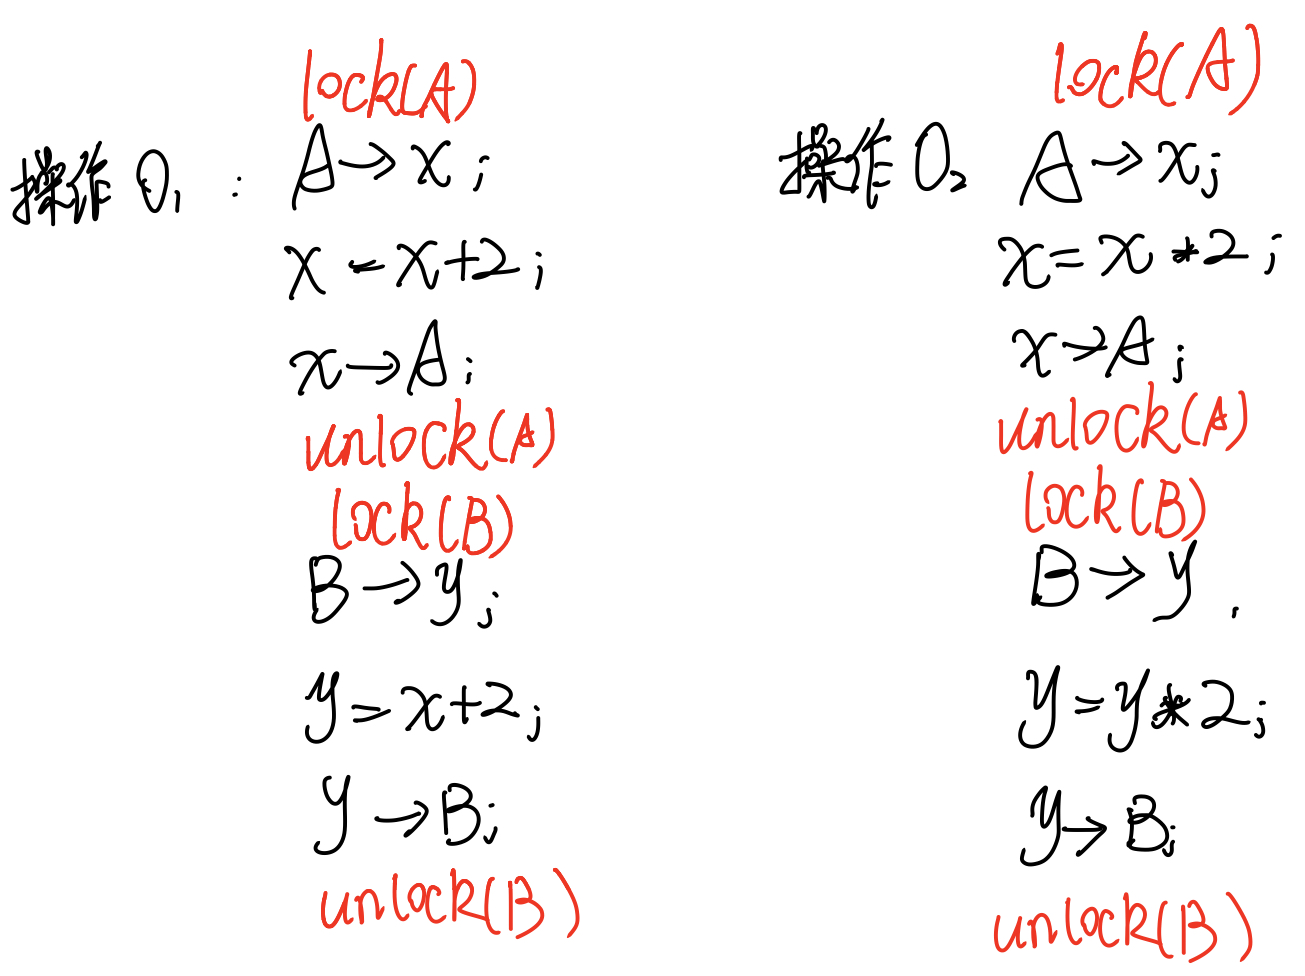 lock(A)
操作 O₁ : A → x ;
x = x+2 ;
x → A ;
unlock(A)
lock(B)
B → y ;
y = x+2 ;
y → B ;
unlock(B)
lock(A)
操作 O₂ A → x ;
x = x * 2 ;
x → A ;
unlock(A)
lock(B)
B → y .
y = y * 2 ;
y → B ;
unlock(B)